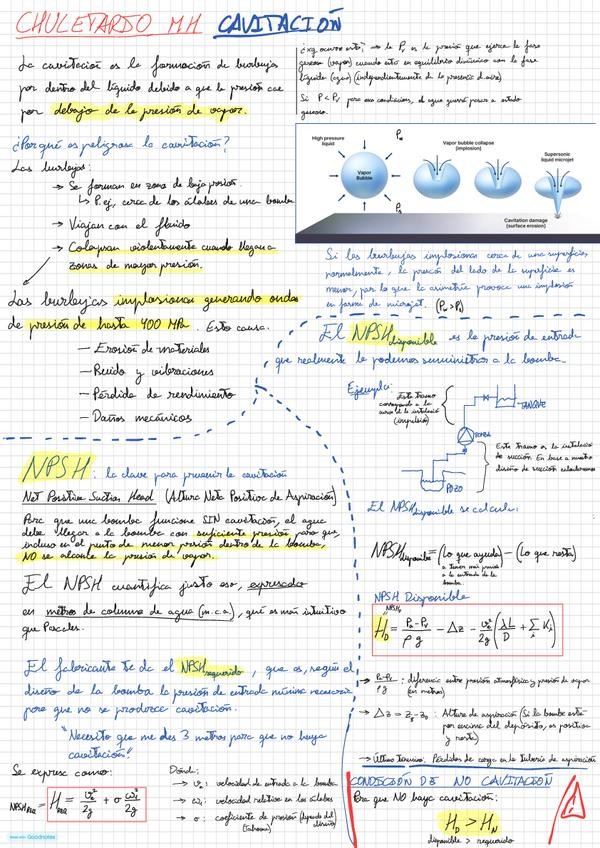 CHULETARIO MH CAVITACIÓN
La cavitación es la formación de burbujas
por dentro del líquido debido a que la presión cae
por debajo de la presión de vapor.
¿Por qué ocurre esto? → la Pv es la presión que ejerce la fase
gaseosa (vapor) cuando está en equilibrio dinámico con la fase
líquida (agua) (independientemente de la presencia d aire)
Si P < Pv para esas condiciones, el agua querrá pasar a estado
gaseoso.
¿Por qué es peligrosa la cavitación?
Las burbujas:
→ Se forman en zona de baja presión.
↳ P. ej, cerca de los álabes de una bomba
→ Viajan con el fluido
→ Colapsan violentamente cuando llegan a
zonas de mayor presión.
High pressure
liquid
Vapor
Bubble
Vapor bubble collapse
(implosion)
Supersonic
liquid microjet
Cavitation damage
(surface erosion)
Si las burbujas implosionan cerca de una superficie,
normalmente, la presión del lado de la superficie es
menor, por lo que la asimetría provoca una implosión
en forma de microjet.
Las burbujas implosionan generando ondas
de presión de hasta 400 MPa. Esto causa:
— Erosión de materiales
— Ruido y vibraciones
— Pérdida de rendimiento
— Daños mecánicos
El NPSH disponible es la presión de entrada
que realmente le podemos suministrar a la bomba.
Ejemplo:
Este tramo
corresponde a la
zona de la instalación
(impulsión)
TANQUE
BOMBA
Este tramo es la instalación
de succión. En base a nuestro
diseño de succión calculamos
POZO
NPSH: la clave para prevenir la cavitación
Net Positive Suction Head (Altura Neta Positiva de Aspiración)
Para que una bomba funcione SIN cavitación, el agua
debe llegar a la bomba con suficiente presión para que,
incluso en el punto de menor presión dentro de la bomba,
NO se alcance la presión de vapor.
El NPSH cuantifica justo eso, expresado
en metros de columna de agua (m.c.a.), que es más intuitivo
que Pascales.
El NPSH disponible se calcula:
NPSH Disponible = (Lo que ayuda) − (Lo que resta)
a tener más presión
a la entrada de la
bomba
NPSH Disponible
NPSH_D
H_D = (Pa − Pv)/(ρ g) − Δz − v_e²/2g (λL/D + Σ K_i)
→ (Pa − Pv)/(ρ g) : diferencia entre presión atmosférica y presión de vapor
(en metros)
→ Δz = z_e − z_0 : Altura de aspiración (Si la bomba está
por encima del depósito, es positiva
y resta)
→ Último término: Pérdidas de carga en la tubería de aspiración
El fabricante te da el NPSH requerido, que es, según el
diseño de la bomba la presión de entrada mínima necesaria
para que no se produzca cavitación.
"Necesito que me des 3 metros para que no haya
cavitación"
Se expresa como:
NPSH req = H req = v_e²/2g + σ ω_1²/2g
Dónde:
→ v_e: velocidad de entrada a la bomba
→ ω_1: velocidad relativa en los álabes
→ σ: coeficiente de presión (depende del diseño)
(Thoma)
CONDICIÓN DE NO CAVITACIÓN
Para que NO haya cavitación:
H_D > H_N
disponible > requerido
Made with Goodnotes